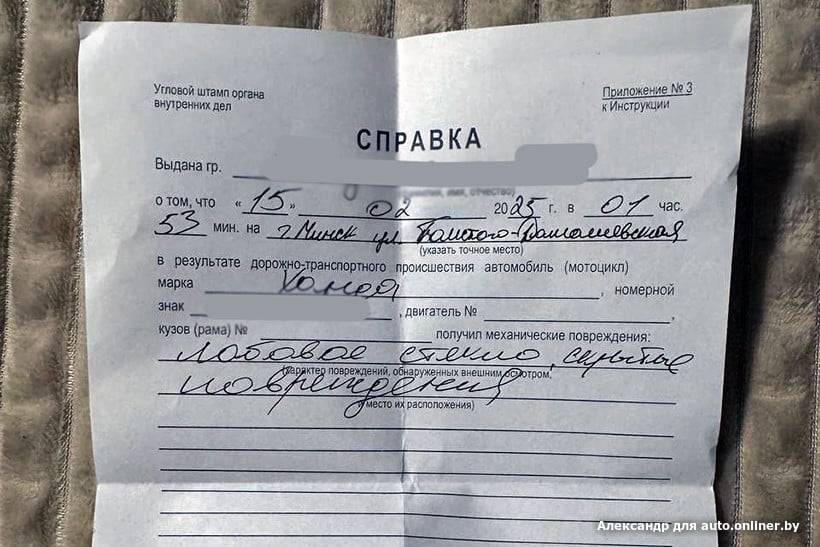 Угловой штамп органа
внутренних дел
Приложение № 3
к Инструкции
СПРАВКА
Выдана гр.
о том, что «15» 02 2025 г. в 01 час.
53 мин. на г. Минск ул.
(указать точное место)
в результате дорожно-транспортного происшествия автомобиль (мотоцикл)
марка Хонда, номерной
знак , двигатель № ,
кузов (рама) № получил механические повреждения:
лобовое стекло, скрытые
(характер повреждений, обнаруженных внешним осмотром,
повреждения
и место их расположения)
Александр для auto.onliner.by